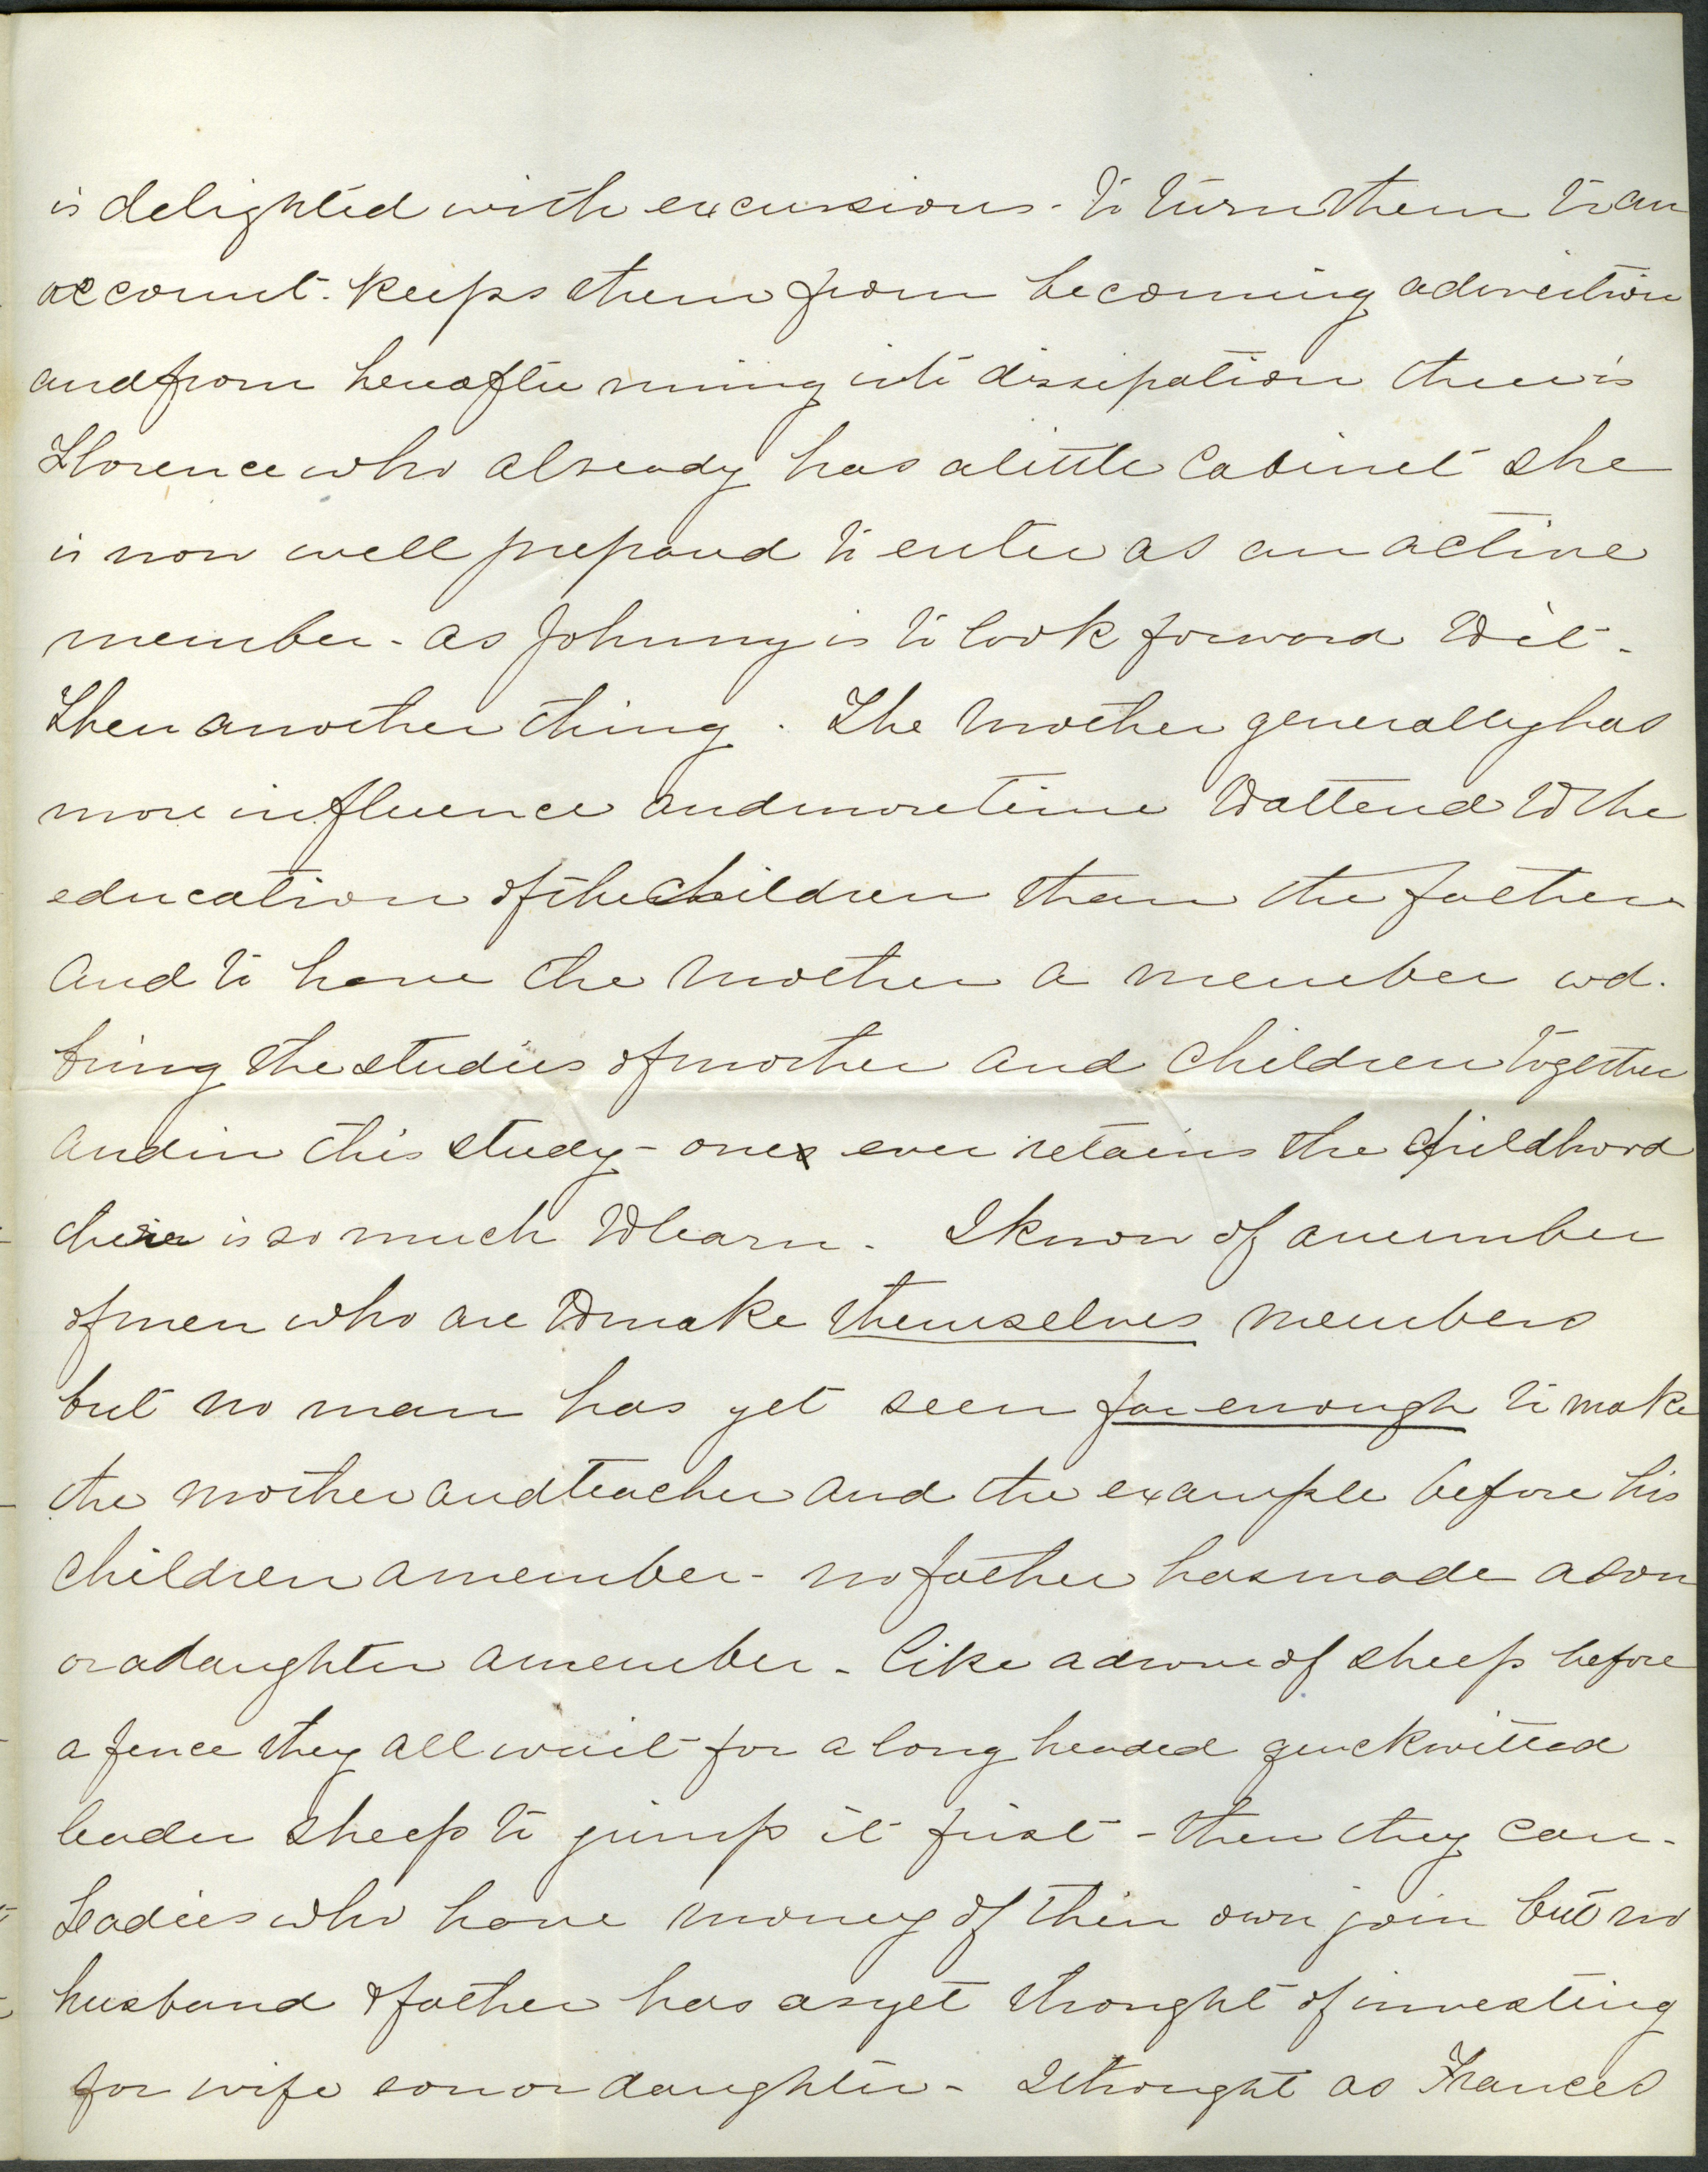 is delighted with excursions - to turn them to an
account - keeps them from becoming a diversion
and from hereafter running into dissipation there is
Florence who already has a little cabinet she
is now well prepared to enter as an active
member - as Johnny is to look forward to it -
Then another thing . The Mother generally has
more influence and more time to attend to the
education of the children than the father
And to have the Mother a member wd.
bring the studies of mother and children together
and in this study - one ever retains the childhood
there is so much to learn - I know of a number
of men who are to make themselves members
but no man has yet seen far enough to make
the mother and teacher and the example before his
children a member - no father has made a son
or a daughter a member - like a drove of sheep before
a fence they all wait for a long headed quickwitted
leader sheep to jump it first - then they can -
Ladies who have money of their own join but no
husband & father has as yet thought of investing
for wife son or daughter - I thought as Frances